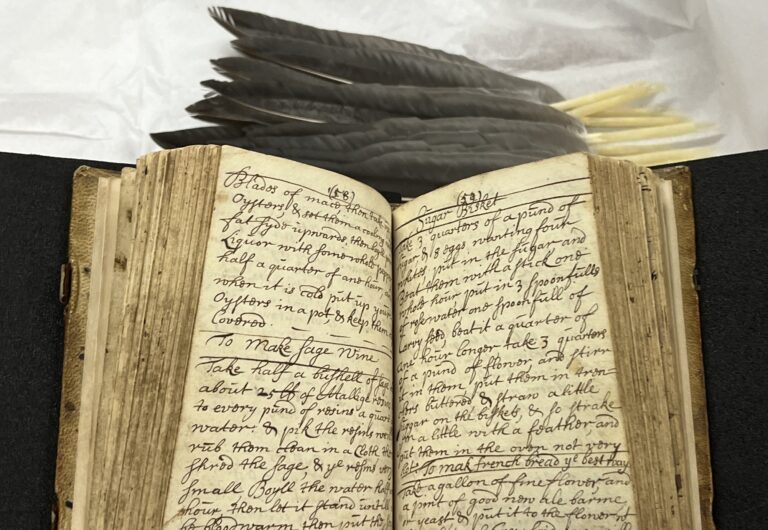 (58)
Blados of mace then take
Oysters, & set them a cooling
fat syde upwards, then
Liquor with some whole
half a quarter of ane hour,
when it is cold put up your
Oysters in a pot, & keep them
Covered.
To Make Sage Wine
Take half a bushell of sage
about 25 lb of Mallige resins
to every pund of resins a quart
water: & pik the resins
rub them clean in a Cloth
shred the sage, & ye resins
small Boyll the water half
hour, then let it stand untill
be bloodwarm then put the
(59)
Sugar Bisket
take 3 quarters of a pund of
sugar & 18 eggs wanting four
whites, put in the sugar and
Beat them with a stick one
whole hour put in 3 spoonfulls
of rosewater one spoonfull of
Carvy seed beat it a quarter of
ane hour longer take 3 quarters
of a pund of flower and stirr
it in them put them in tren
chers buttered & straw a little
sugar on the biskets, & so strake
in a little with a feather and
put them in the oven not very
hot. To mak french bread ye best way
Take a gallon of fine flower and
a pint of good new ale barme
or yeast & put it to the flower